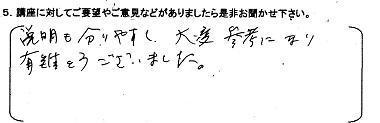 5. 講座に対してご要望やご意見などがありましたら是非お聞かせ下さい。
説明も分りやすく大変参考になり
有難とうございました。